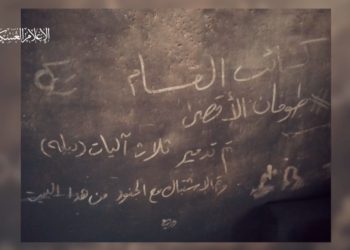 الإعلام العسكري
كتائب القسام
#طوفان الأقصى
تم تدمير ثلاث آليات (دبابة)
وتم الاشتباك مع الجنود من هذا البيت